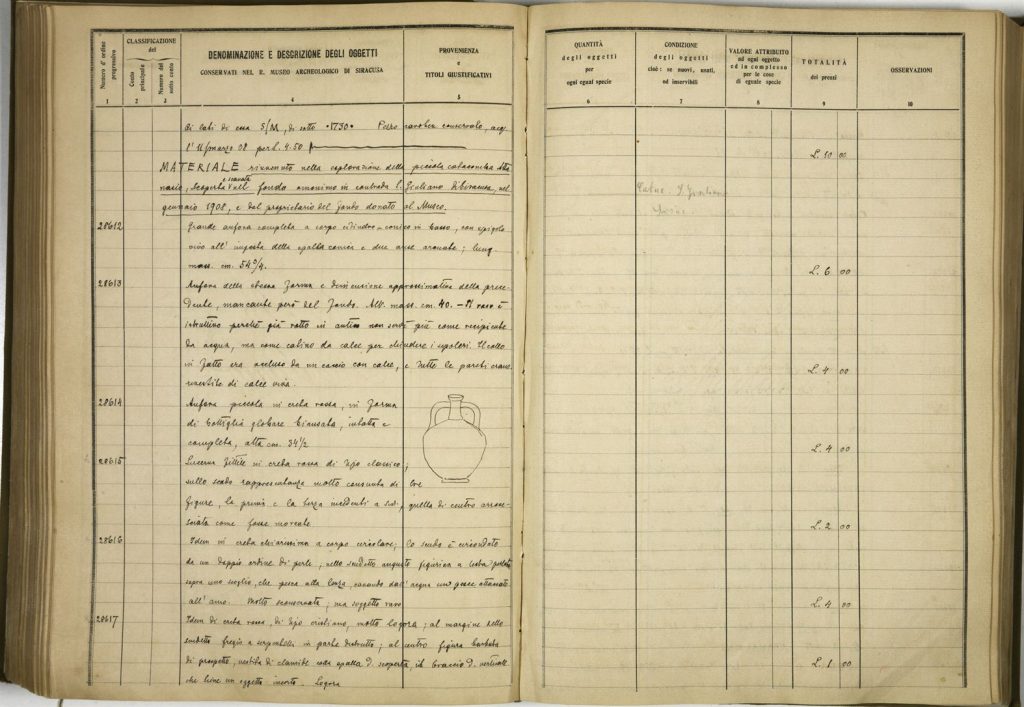 Numero d'ordine progressivo
CLASSIFICAZIONE
del
Conto principale
Numero del sotto conto
DENOMINAZIONE E DESCRIZIONE DEGLI OGGETTI
CONSERVATI NEL R. MUSEO ARCHEOLOGICO DI SIRACUSA
PROVENIENZA
e
TITOLI GIUSTIFICATIVI
1 2 3 4 5
di lati di essa S/M, di sotto •VI30• Pezzo conservato, acq.
l' 11/marzo 08 per L. 4.50
MATERIALE rinvenuto nella esplorazione della piccola catacomba Ata
nasio, scoperta e scavata nell fondo omonimo in contrada S. Giuliano di Siracusa, nel
gennaio 1908, e dal proprietario del fondo donato al Museo.
28612 Grande anfora completa a corpo cilindro-conico in basso, con spigolo
vivo all' imposta della spalla conica e due anse arcuate; lung.
mass. cm. 54 3/4.
28613 Anfora della stessa forma e dimensione approssimativa della prece-
dente, mancante però del fondo. Alt. mass. cm. 40. - Il vaso è
istruttivo perchè già rotto in antico non servì più come recipiente
da acqua, ma come catino da calce per chiudere i sepolcri. Il collo
in fatto era occluso da un coccio con calce, e tutte le pareti erano
rivestite di calce viva.
28614 Anfora piccola in creta rossa, in forma
di bottiglia globare biansata, intatta e
completa, alta cm. 34 1/2
28615 Lucerna fittile in creta rossa di tipo classico;
sullo scudo rappresentanza molto consunta di tre
figure, la prima e la terza incedenti a sin., quella di centro
come fosse morente
28616 Idem in creta chiarissima a corpo circolare; lo scudo è circondato
da un doppio ordine di perle, nello scudetto angusto figurina a testa
sopra uno scoglio, che pesca alla lenza, cavando dall' acqua un pesce attaccato
all' amo. Molto sconservata; ma soggetto raro
28617 Idem di creta rossa, di tipo cristiano, molto logora; al margine dello
scudetto fregio a in parte distrutto; al centro figura barbata
di prospetto, vestita di clamide colla spalla d. scoperta, il braccio d.
che tiene un oggetto incerto. Logora
QUANTITÀ
degli oggetti
per
ogni egual specie
CONDIZIONE
degli oggetti
cioè: se nuovi, usati,
od inservibili
VALORE ATTRIBUITO
ad ogni oggetto
ed in complesso
per le cose
di eguale specie
TOTALITÀ
dei prezzi
OSSERVAZIONI
6 7 8 9 10
L. 10 00
Catac. S. Giuliano
L. 6 00
L. 4 00
L. 4 00
L. 2 00
L. 4 00
L. 1 00